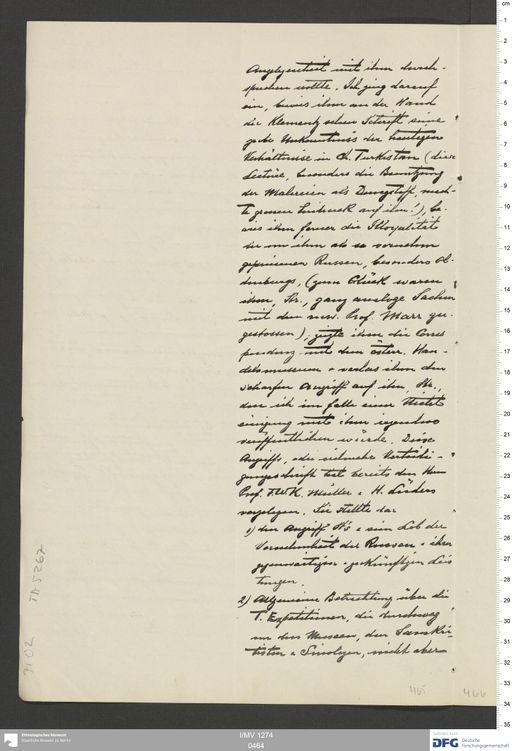 Angelegenheit mit ihm durch-
sprechen wollte. Ich ging darauf
ein, bewies ihm an der Hand
die Klementz'schen Schrift seine
gute Unkenntniss der heutigen
Verhältnisse in Ch. Turkistan (diese
Lectüre, besonders die Benutzung
der Malereien als Dungstoff, mach-
te grossen Eindruck auf ihn!), be-
wies ihm ferner die Illoyalität
der von ihm als so vornehm
gepriesenen Russen, besonders Ol-
denburgs, (zum Glück waren
ihm, Gr., ganz analoge Sachen
mit dem russ. Prof. Marr zu-
gestossen), zeigte ihm die Corres
pondenz mit dem österr. Han-
delsmuseum + verlas ihm den
scharfen Angriff auf ihn,
den ich im Falle einer Nicht
einigung mit ihm irgendwo
veröffentlichen würde. Diese
Angriffs, oder vielmehr Vertheidi-
gungsschrift hat bereits den Herrn
Prof. F.W.K. Müller + H. Lüders
vorgelegen. Sie stellte dar
1) den Angriff + sein Lob der
Vornehmheit der Russen + ihrer
gegenwärtigen + zukünftigen Leis
tungen.
2) Allgemeine Betrachtung über die
T. Expeditionen, die durchweg
nur den Museen, den Sanskri
tisten + Sinologen, nicht aber
TA 5267
465
466
I/MV 1274
0464
Ethnologisches Museum
Staatliche Museen zu Berlin
DFG Deutsche
Forschungsgemeinschaft